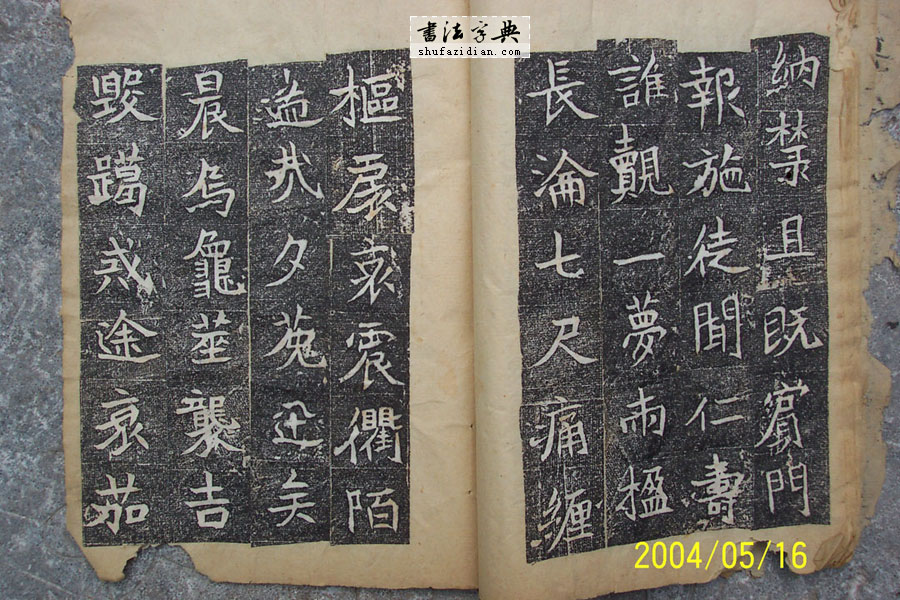 書法字典
shufazidian.com
納禁且既賓門
報施徒聞仁壽
誰覿一夢兩楹
長淪七尺痛纏
樞扆哀震衢陌
哉夕菟迅矣
晨烏龜莖襲吉
戒途哀茄
2004/05/16